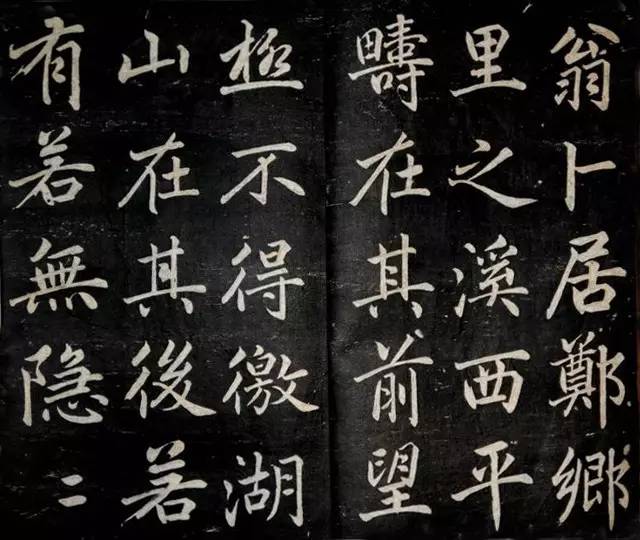 翁卜居鄭鄉
里之溪西平
疇在其前望
極不得徼湖
山在其後若
有若無隐二